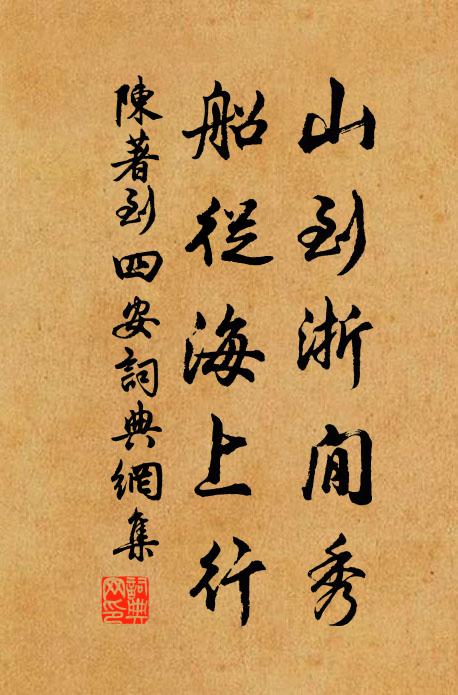 山到浙間秀
船從海上行
陳著到四安詞典網集
詞典網印